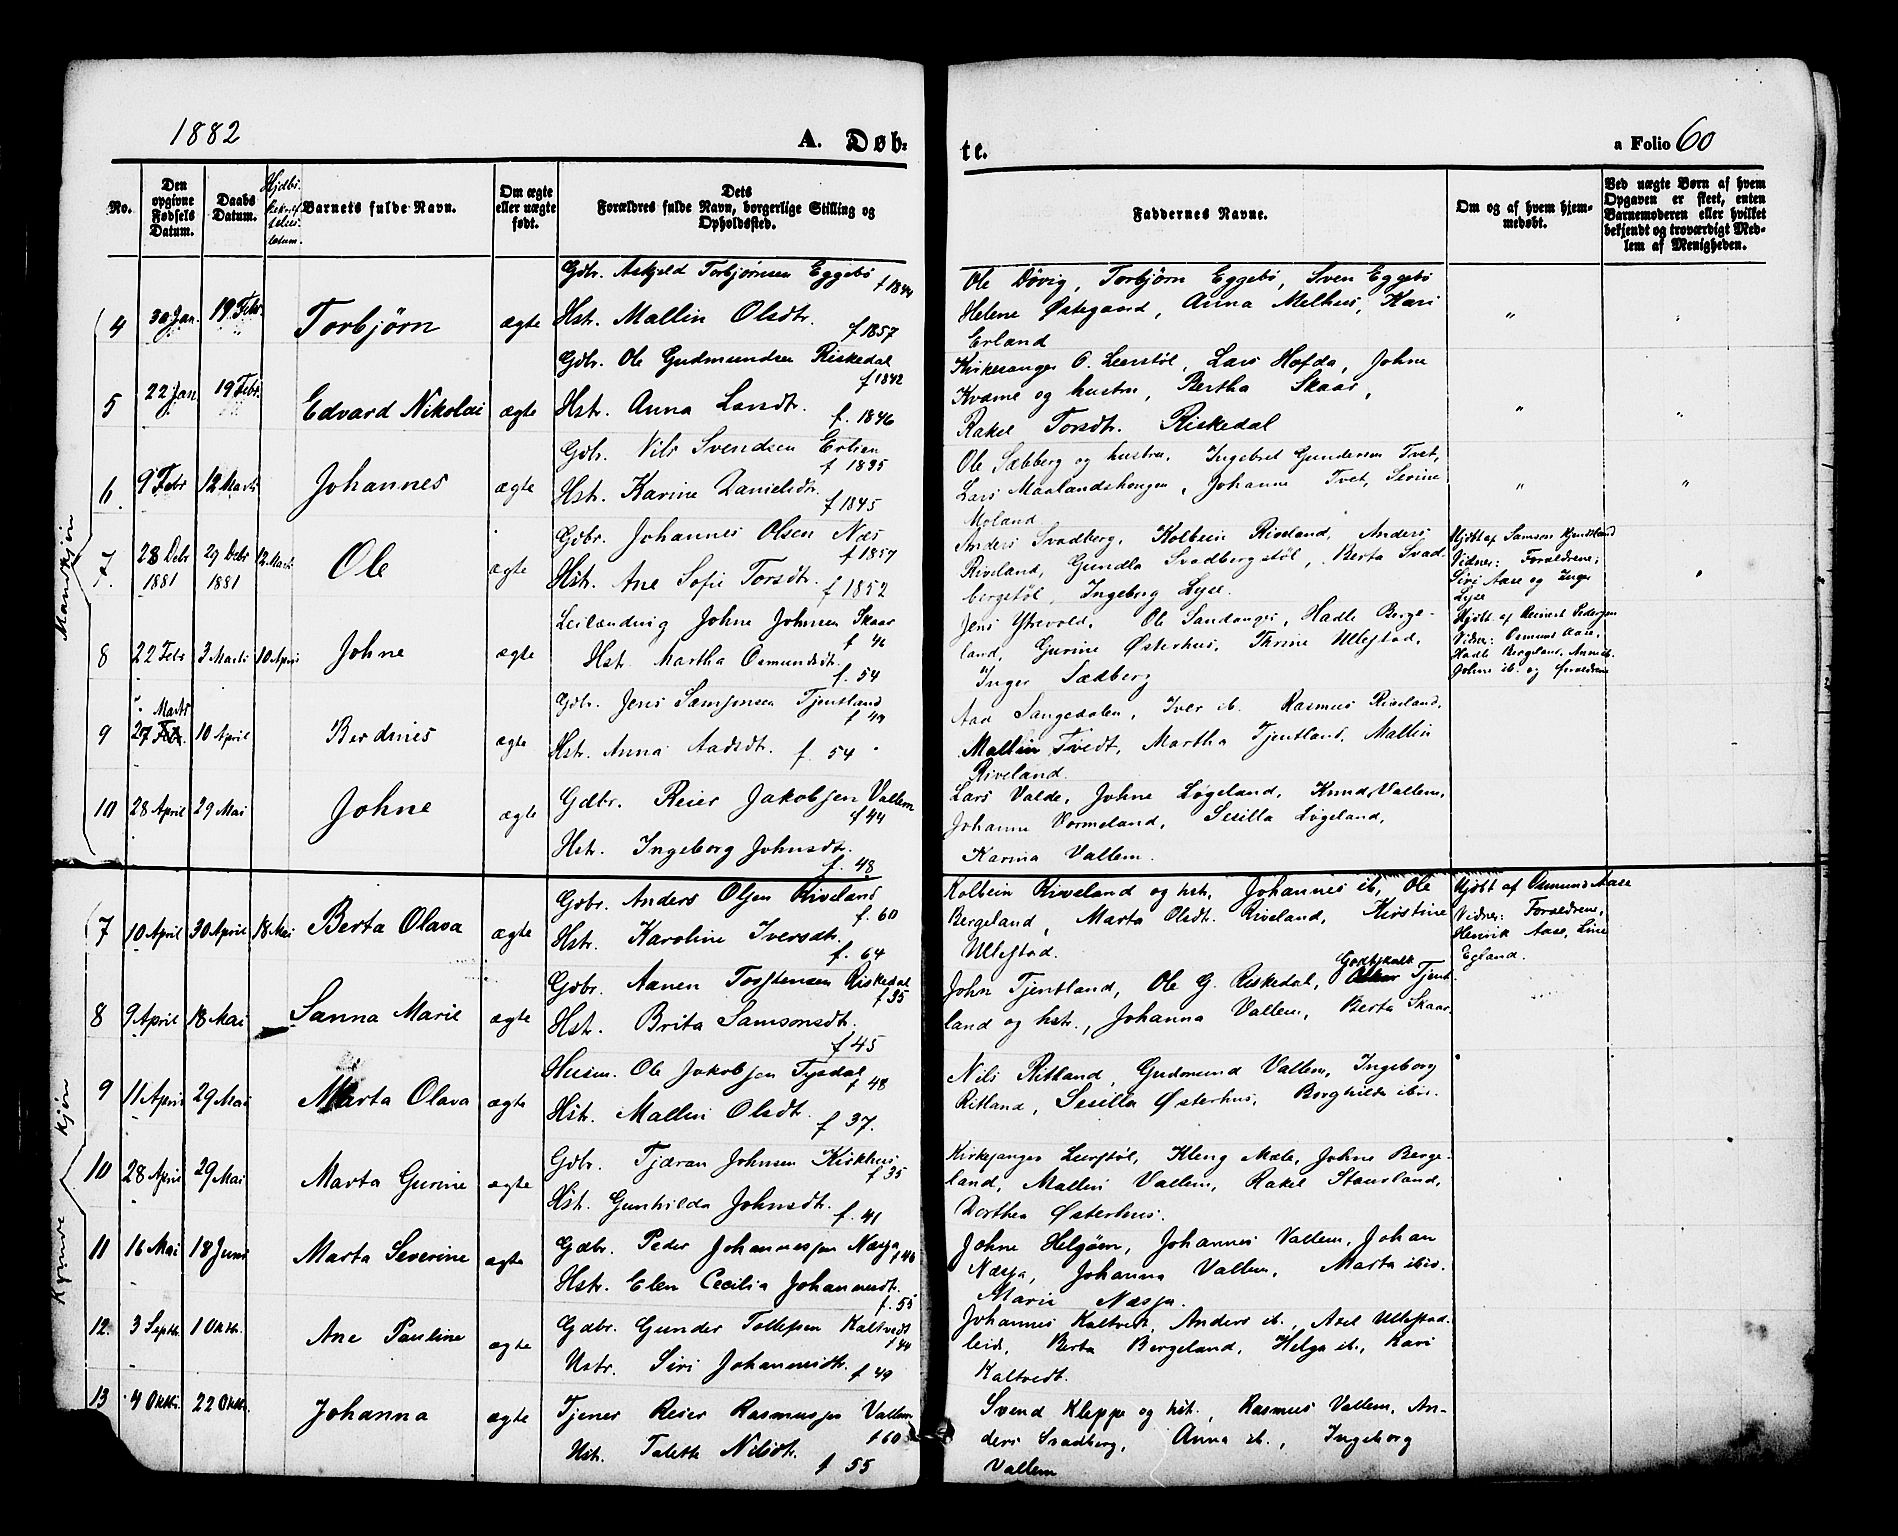 1882
A. Døb-
te.
a Folio 60
No.
Den opgivne Fødsels Datum.
Daabs Datum.
Hjdbs.
Barnets fulde Navn.
Om ægte eller uægte født.
Dets Forældres fulde Navn, borgerlige Stilling og Opholdssted.
Faddernes Navne.
Om og af hvem hjemmedøbt.
Ved uægte Børn af hvem Opgaven er skeet, enten Barnemoderen eller hvilket bekjendt og troværdigt Medlem af Menigheden.
Mandkjøn
4 30 Jan. 19 Febr. Torbjørn ægte
Gdbr. Askjeld Torbjørnsen Eggebø f 1844
Hstr. Mallin Olsdtr. f 1857
Ole Døvig, Torbjørn Eggebø, Sven Eggebø
Helene Østegaard, Anna Melhus, Kari
Erland
5 22 Jan. 19 Febr. Edvard Nikolai ægte
Gdbr. Ole Gudmundsen Riskedal f 1842
Hstr. Anna Larsdtr. f. 1846
Kirkesanger O. Leerstøl, Lars Hofda, Johne
Kvame og hustru, Bertha Skaar,
Rakel Torsdtr. Riskedal
6 9 Febr 12 Marts Johannes ægte
Gdbr. Nils Svendsen Erlien f 1835
Hstr. Karine Danielsdtr. f 1845
Ole Sæbberg og hustru, Ingebret Gundersen Tvet,
Lars Maalandshougen, Johanne Tvet, Serine
Moland
7 28 Debr 1881 29 Debr 1881 12 Marts Ole ægte
Gdbr. Johannes Olsen Næs f 1857
Hstr. Ane Sofie Torsdtr. f 1852
Anders Svadberg, Kolbein Riveland, Anders
Riveland, Gundla Svadbergstøl, Berta Svad-
bergstøl, Ingeborg Lyse.
Hjdbt af Samson Kjendtland
Vidner: Forældrene;
Siri Aase og Inger
Lyse
8 22 Febr 3 Marts 10 April Johne ægte
Leilending Johne Johnsen Skaar f 46
Hstr. Martha Osmundsdt. f. 54
Jens Ytrevold, Ole Sandanger, Hadle Berge-
land, Gurine Østerhus, Thrine Ullestad,
Inger Sædberg
Hjdbt. af Reinert Pedersen
Vidner: Osmund Aase,
Hadle Bergeland,
Johne ib. og forældrene
9 27 Marts 10 April Berdines ægte
Gdbr. Jens Samsonsen Tjentland f 49
Hstr. Anna Aadsdt. f. 54
Aad Sangesdalen, Iver ib. Rasmus Riveland,
Mallin Tvedt, Martha Tjentland, Mallin
Riveland.
10 28 April 29 Mai Johne ægte
Gdbr. Reier Jakobsen Vallem f 44
Hstr. Ingeborg Johnsdtr. f. 48
Lars Valde, Johne Løgeland, Knud Vallem,
Johanne Vormeland, Sesilla Løgeland,
Karina Vallem.
Kvinde kjøn
7 10 April 30 April 18 Mai Berta Olava ægte
Gdbr. Anders Olsen Riveland f. 60
Hstr. Karoline Iversdt. f. 64
Kolbein Riveland og hst., Johannes ib, Ole
Bergeland, Marta Olsdt. Riveland, Kirstine
Ullestad.
Hjdbt af Osmund Aase
Vidner: Forældrene,
Henrik Aase, Line
Egland.
8 9 April 18 Mai Sanna Marie ægte
Gdbr. Aanen Torstensen Riskedal f 35
Hstr. Brita Samsonsdt. f 45
John Tjentland, Ole G. Riskedal, Godtskalk Tjent-
land og hst., Johanna Vallem, Berta Skaar.
9 11 April 29 Mai Marta Olava ægte
Husm. Ole Jakobsen Tysdal f 48
Hstr. Mallin Olsdt. f 37.
Nils Ritland, Gudmund Vallem, Ingeborg
Ritland, Sesilla Østerhus, Borghilda ibid.
10 28 April 29 Mai Marta Gurine ægte
Gdbr. Tjæran Johnsen Kirkhus f 35
Hstr. Gunhilda Johnsdt. f. 41
Kirkesanger Leerstøl, Kleng Mæle, Johne Berge-
land, Mallin Vallem, Rakel Stausland,
Dorthea Østerhus.
11 16 Mai 18 Juni Marta Severine ægte
Gdbr. Peder Johannessen Næsja f 46
Hstr. Elen Cecilia Johannesdt. f. 55
Johne Helgøen, Johannes Vallem, Johan
Næsja, Johanna Vallem, Marta ibid.
Marie Næsja.
12. 3 Septbr. 1 Oktbr. Ane Pauline ægte
Gdbr. Gunder Tollefsen Kaltvedt f 44
Hstr. Siri Johannesdt. f 49
Johannes Kaltvedt, Anders ib., Axel Ullestad-
leid, Berta Bergeland, Helga ib., Kari
Kaltvedt.
13 4 Oktbr. 22 Oktbr. Johanna ægte
Tjener Reier Rasmussen Vallem f 60
Hst. Talette Nilsdt. f 55
Svend Kleppe og hst., Rasmus Vallem, An-
ders Svadberg, Anna ib., Ingeborg
Vallem